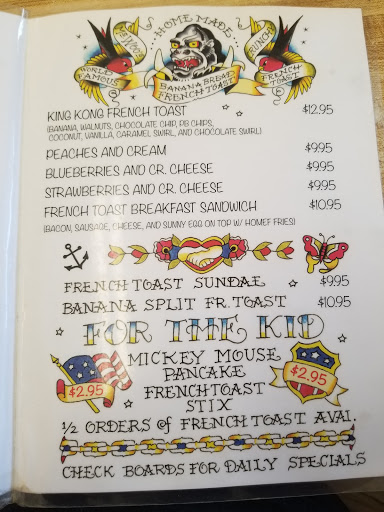 HOME MADE
WORLD FAMOUS
BANANA BREAD
FRENCH TOAST
BRUNCH
FRENCH TOAST
KING KONG FRENCH TOAST $12.95
(BANANA, WALNUTS, CHOCOLATE CHIP, PB CHIPS,
COCONUT, VANILLA, CARAMEL SWIRL, AND CHOCOLATE SWIRL)
PEACHES AND CREAM $9.95
BLUEBERRIES AND CR. CHEESE $9.95
STRAWBERRIES AND CR. CHEESE $9.95
FRENCH TOAST BREAKFAST SANDWICH $10.95
(BACON, SAUSAGE, CHEESE, AND SUNNY EGG ON TOP W/ HOMEF FRIES)
FRENCH TOAST SUNDAE $9.95
BANANA SPLIT FR. TOAST $10.95
FOR THE KID
MICKEY MOUSE
PANCAKE
$2.95
$2.95
FRENCH TOAST
STIX
1/2 ORDERS of FRENCH TOAST AVAI.
CHECK BOARDS FOR DAILY SPECIALS